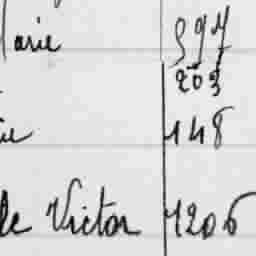 Marie 597
203
148
de Victor 1206